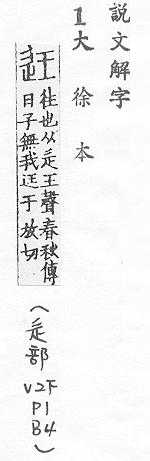 説文解字
1大徐本
迋
往也从辵王聲春秋傳
曰子無我迋于放切
(辵部V2下P1B4)